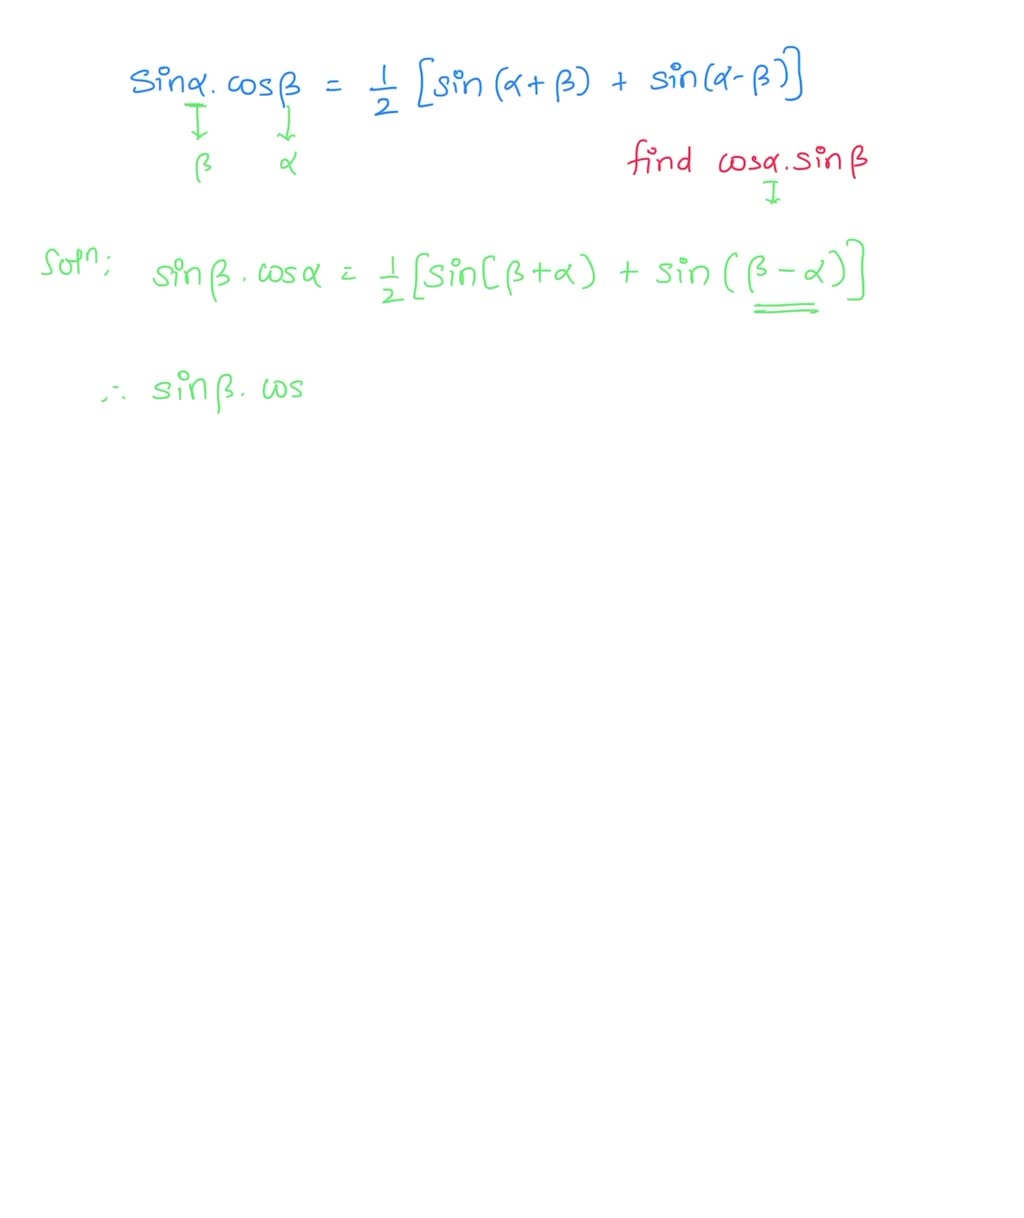 sinα. cosβ = 1/2 [sin (α+β) + sin(α-β)]
β α
find cosα.sinβ
Soln;
sinβ. cosα = 1/2 [sin(β+α) + sin (β-α)]
∴ sinβ. cos